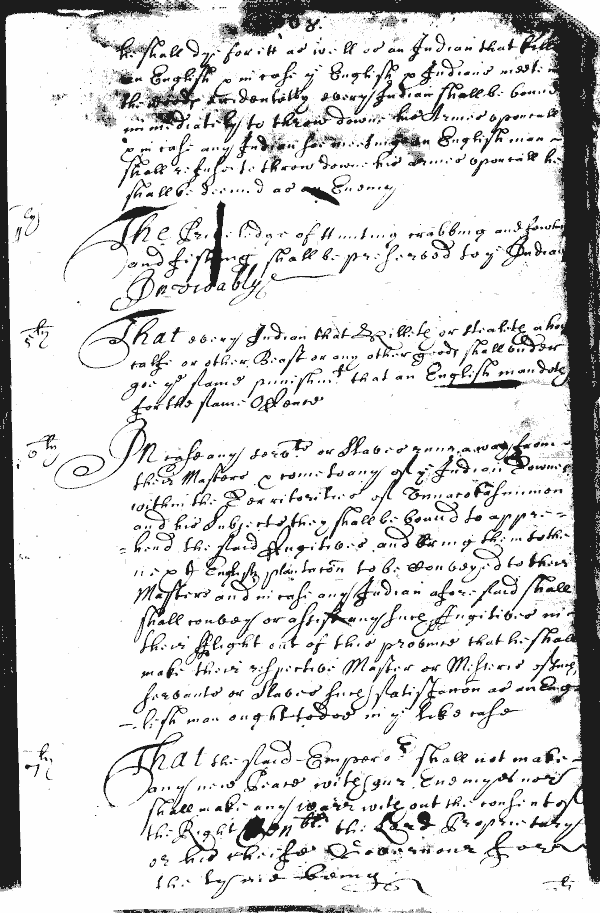 he shall dye for itt as well as an Indian that kills
an English in case ye English Indians meet in
the woods accidentally every Indian shall be bound
immediately to throw downe his Armes upon call
in case any Indian soe meeting an English man
shall refuse to throw downe his armes upon call he
shall be deemed as Enemy
4ly
The Priviledge of Hunting crabbing and fowling
and fishing shall be preserved to ye Indians
Inviolably
5ly
That every Indian that Killeth or stealeth a hog
calfe or other Beast or any other goods shall under
goe ye same punishmt that an English man doth
for the same Offence
6ly
In case any servts or Slaves runn away from
their Masters come to any of ye Indian Townes
within the Territories of Unnacokasimmon
and his Subjects they shall be bound to appre-
hend the said Fugitives and bring them to the
next English plantacon to be Conveyed to their
Masters and in case any Indian aforesaid shall
shall convey or assist any such Fugitives in
their Flight out of this province that he shall
make their respective Master or Mistris of such
servants or Slaves such satisfacon as an Eng-
-lish man ought to doe in ye like case
7ly
That the said Emperor shall not make
any new Peace with our Enemyes nor
shall make any warr without the consent of
the Right Honble the Lord Proprietary
or his cheife Governour for
the tyme being